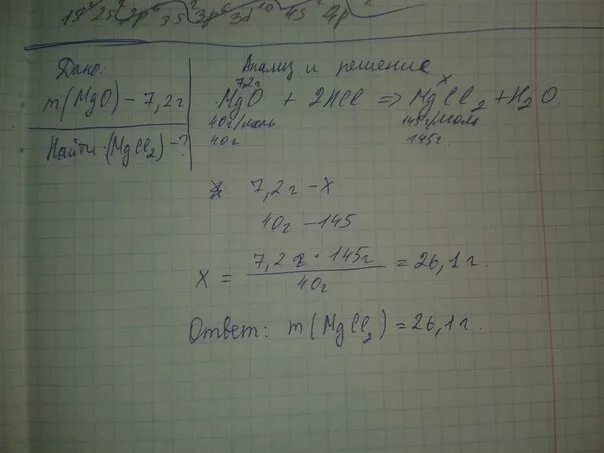 1s² 2s² 2p⁶ 3s² 3p⁶ 3d¹⁰ 4s² 4p²
Дано:
m(MgO) - 7,2г
Найти: (MgCl₂) - ?
Анализ и решение
7,2г x
MgO + 2HCl => MgCl₂ + H₂O
40г/моль 145г/моль
40г 145г
7,2г - x
40г - 145
x = 7,2г · 145г / 40г = 26,1г.
Ответ: m(MgCl₂) = 26,1г.